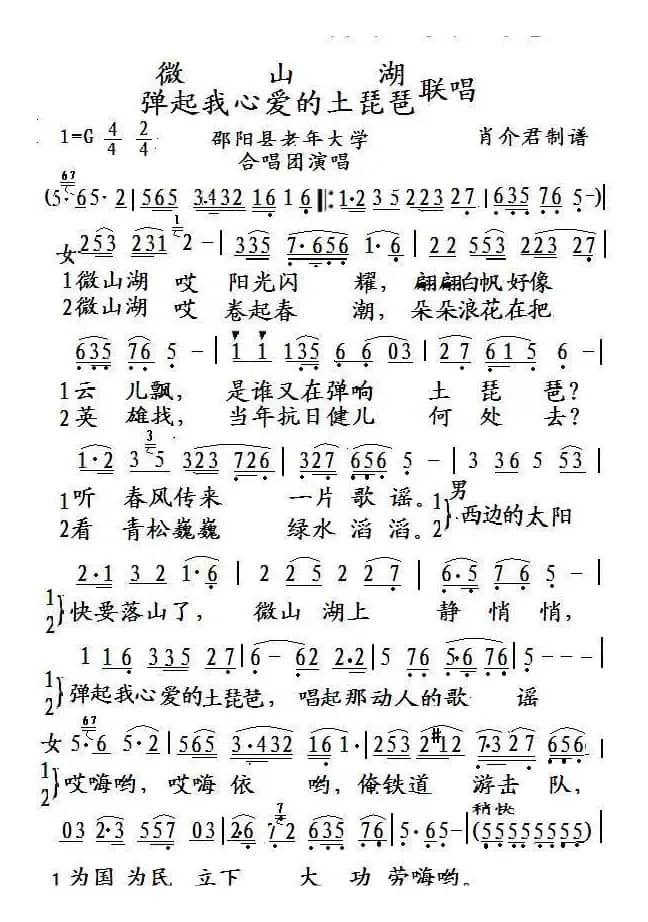 微 山 湖
弹起我心爱的土琵琶 联唱
1=G 4/4 2/4 邵阳县老年大学 肖介君制谱
合唱团演唱
(5·65·2|565 3·432 16 16|:1·2 35 223 27|635 76 5-)|
女 253 231 2-|335 7·656 1·6|22 553 223 27|
1微山湖 哎 阳光闪 耀，翩翩白帆好像
2微山湖 哎 卷起春 潮，朵朵浪花在把
635 76 5-|1 1 135 66 03|27 615 6-|
1云 儿飘， 是谁又在弹响 土 琵 琶？
2英 雄找， 当年抗日健儿 何 处 去？
1·2 35 323 726|327 656 5-|3 36 5 53|
1听 春风传来 一片 歌 谣。1 男
2看 青松巍巍 绿水 滔 滔。2 西边的太阳
2·1 32 1·6|2 25 2 27|6·5 76 5-|
1
2 快要落山了， 微山 湖上 静 悄 悄，
1 16 335 27|6- 62 2·2|5 76 5·6 76|
1
2 弹起我心爱的土琵琶， 唱起那动人的歌 谣
女 5·6 5·2|565 3·432 16 1·|253 212 7·327 656|
1
2 哎嗨哟，哎嗨 依 哟，俺铁道 游击 队，
稍快
03 2·3 557 03|2·6 72 635 76|5·65-|(55555555|
1 为国 为民 立下 大 功 劳嗨哟。